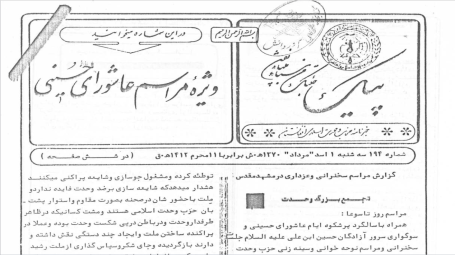 بسم الله الرحمن الرحیم
در این شماره میخوانید
ویژهٔ مراسم عاشورای حسینی
پیک
خبرنامه حزب وحدت اسلامی افغانستان
شماره ۱۹۴ سه شنبه ۱ اسد "مرداد" ۱۳۷۰ ه.ش برابر با ۱۱ محرم ۱۴۱۲ ه.ق (در شش صفحه)
گزارش مراسم سخنرانی وعزاداری در مشهد مقدس
تجمع بزرگ وحدت
مراسم روز تاسوعا :
همراه باسالگرد پرشکوه ایام عاشورای حسینی و
سوگواری سرور آزادگان حسین ابن علی علیه السلام جلسه
سخنرانی ومراسم نوحه خوانی وسینه زنی حزب وحدت
توطئه کرده ومشغول جوسازی وشایعه پراکنی میکنند
هشدار میدهد که شایعه سازی برضد وحدت فایده ندارد و
ملت باحضور شان درصحنه بصورت مقاوم واستوار پشت-
بان حزب وحدت اسلامی هستند ومشت کسانیکه درظاهر
طرفدار وحدت ودرباطن درپی شکست وحدت بوده وعملا در
پراکنده ساختن ملت وایجاد چند دستگی نقش داشته و
دارند بازگردیده وجای شکروسپاس گذاری از ملت رشید